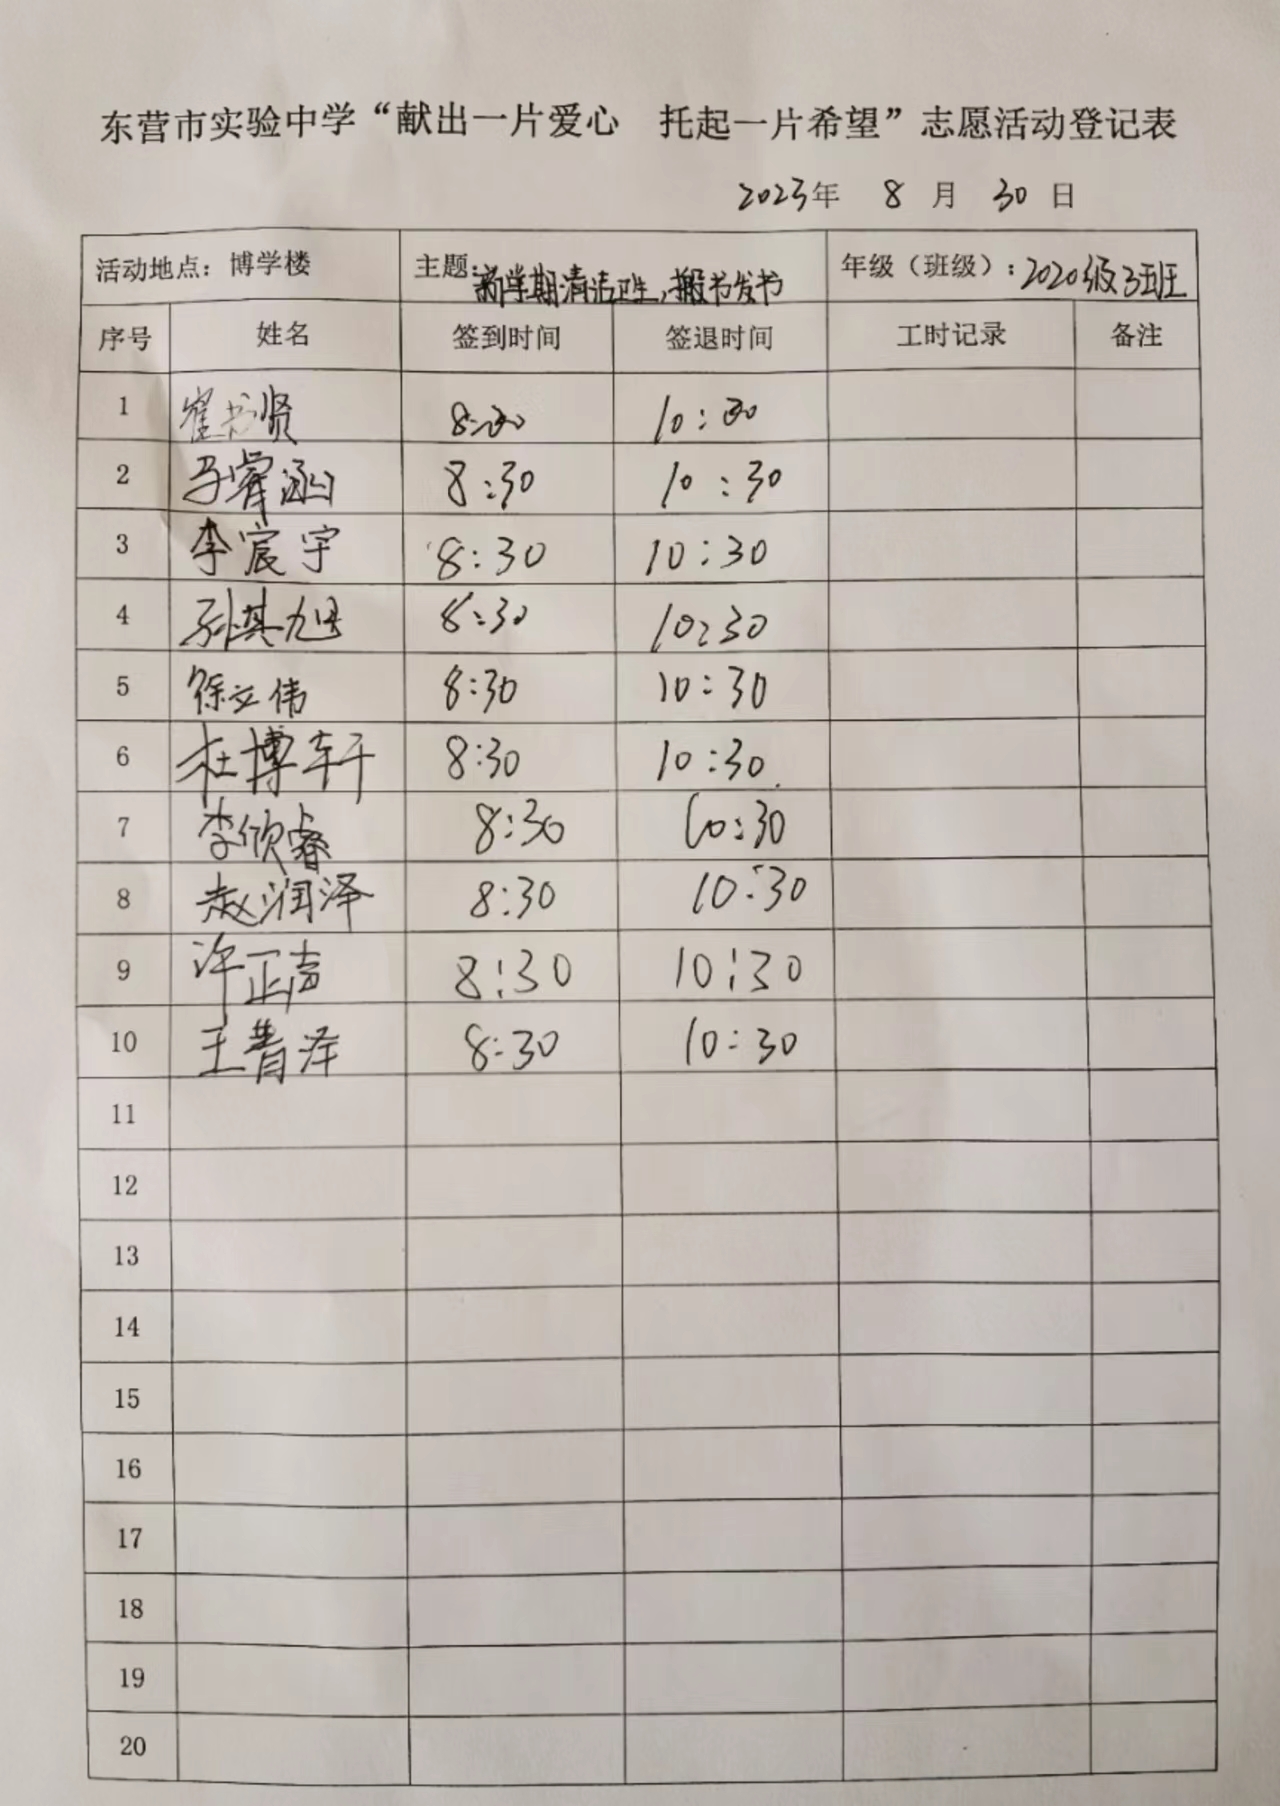 东营市实验中学“献出一片爱心 托起一片希望”志愿活动登记表
2023年 8 月 30 日
活动地点：博学楼 主题：新学期清洁卫生，搬书发书 年级（班级）：2020级3班
序号 姓名 签到时间 签退时间 工时记录 备注
1 崔书贤 8:30 10:30
2 马睿涵 8:30 10:30
3 李宸宇 8:30 10:30
4 孙其旭 8:30 10:30
5 徐立伟 8:30 10:30
6 杜博轩 8:30 10:30
7 李欣睿 8:30 10:30
8 赵润泽 8:30 10:30
9 许正声 8:30 10:30
10 王普泽 8:30 10:30
11
12
13
14
15
16
17
18
19
20